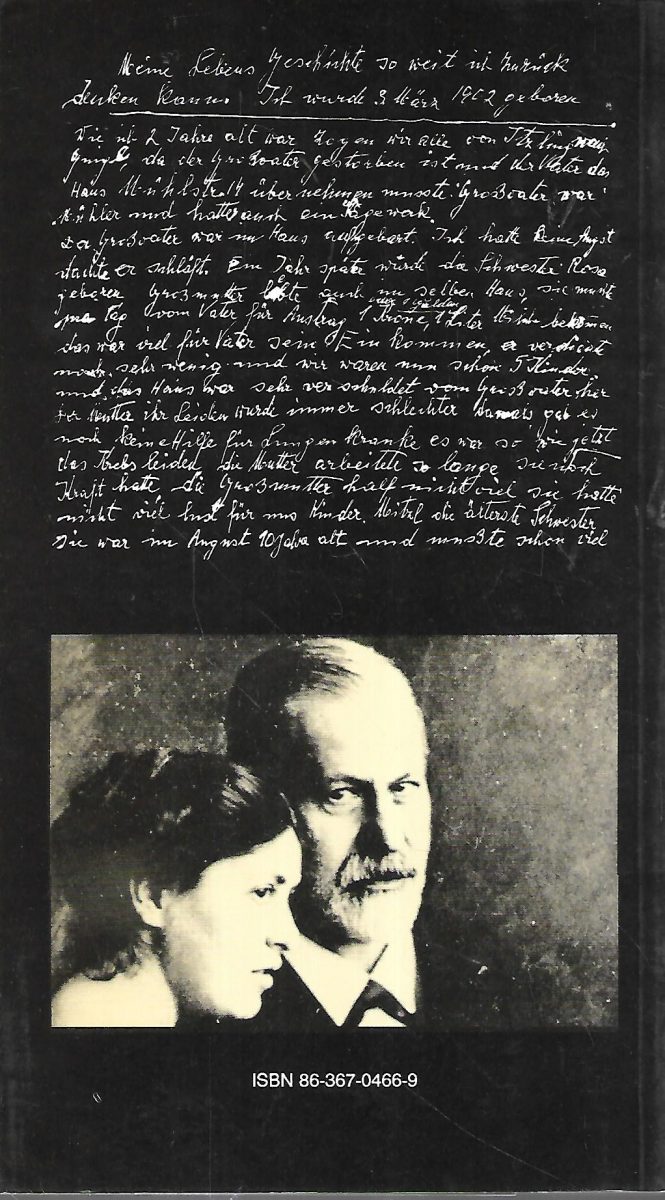 Meine Lebens Geschichte so weit ich zurück
denken kann. Ich wurde 3. März 1902 geboren
Wie ich 2 Jahre alt war zogen wir alle von
da der Großvater gestorben ist und der Vater das
Haus Mühlstr. 14 übernehmen musste. Großvater war
und hatte auch ein
Der Großvater war im Haus aufgebart. Ich hatte keine Angst
dachte er schläft. Ein Jahr später wurde die Schwester Rosa
geboren Großmutter lebte auch im selben Haus, sie musste
pro Tag vom Vater für Austrag 1 Krone, oder 1 Gulden 1 Liter bekommen
das war viel für Vater sein Einkommen, er verdiente
noch sehr wenig und wir waren nun schon 5 Kinder.
und das Haus war sehr verschuldet vom Großvater her
der Mutter ihr Leiden wurde immer schlechter damals gab es
noch keine Hilfe für Lungen kranke es war so wie jetzt
das Krebsleiden, die Mutter arbeitete so lange sie noch
Kraft hatte, die Großmutter half nicht viel sie hatte
nicht viel lust für uns Kinder. die älterste Schwester
sie war im August 10 Jahre alt und mußte schon viel
ISBN 86-367-0466-9